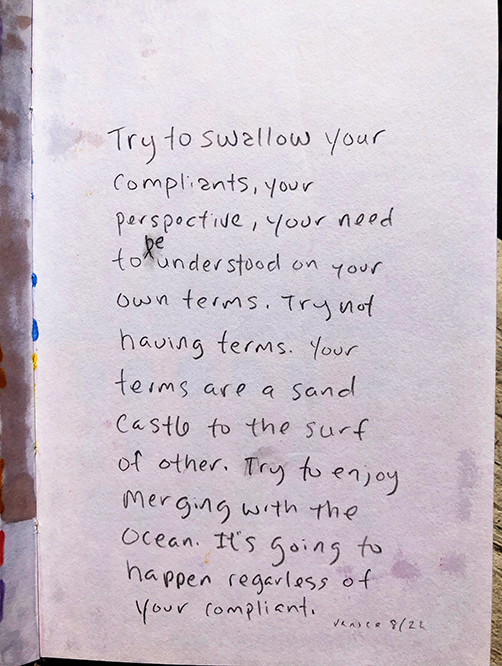 Try to swallow your
compliants, your
perspective, your need
to be understood on your
own terms. Try not
having terms. Your
terms are a sand
castle to the surf
of other. Try to enjoy
merging with the
ocean. It's going to
happen regarless of
your compliant.
Venice 8/22